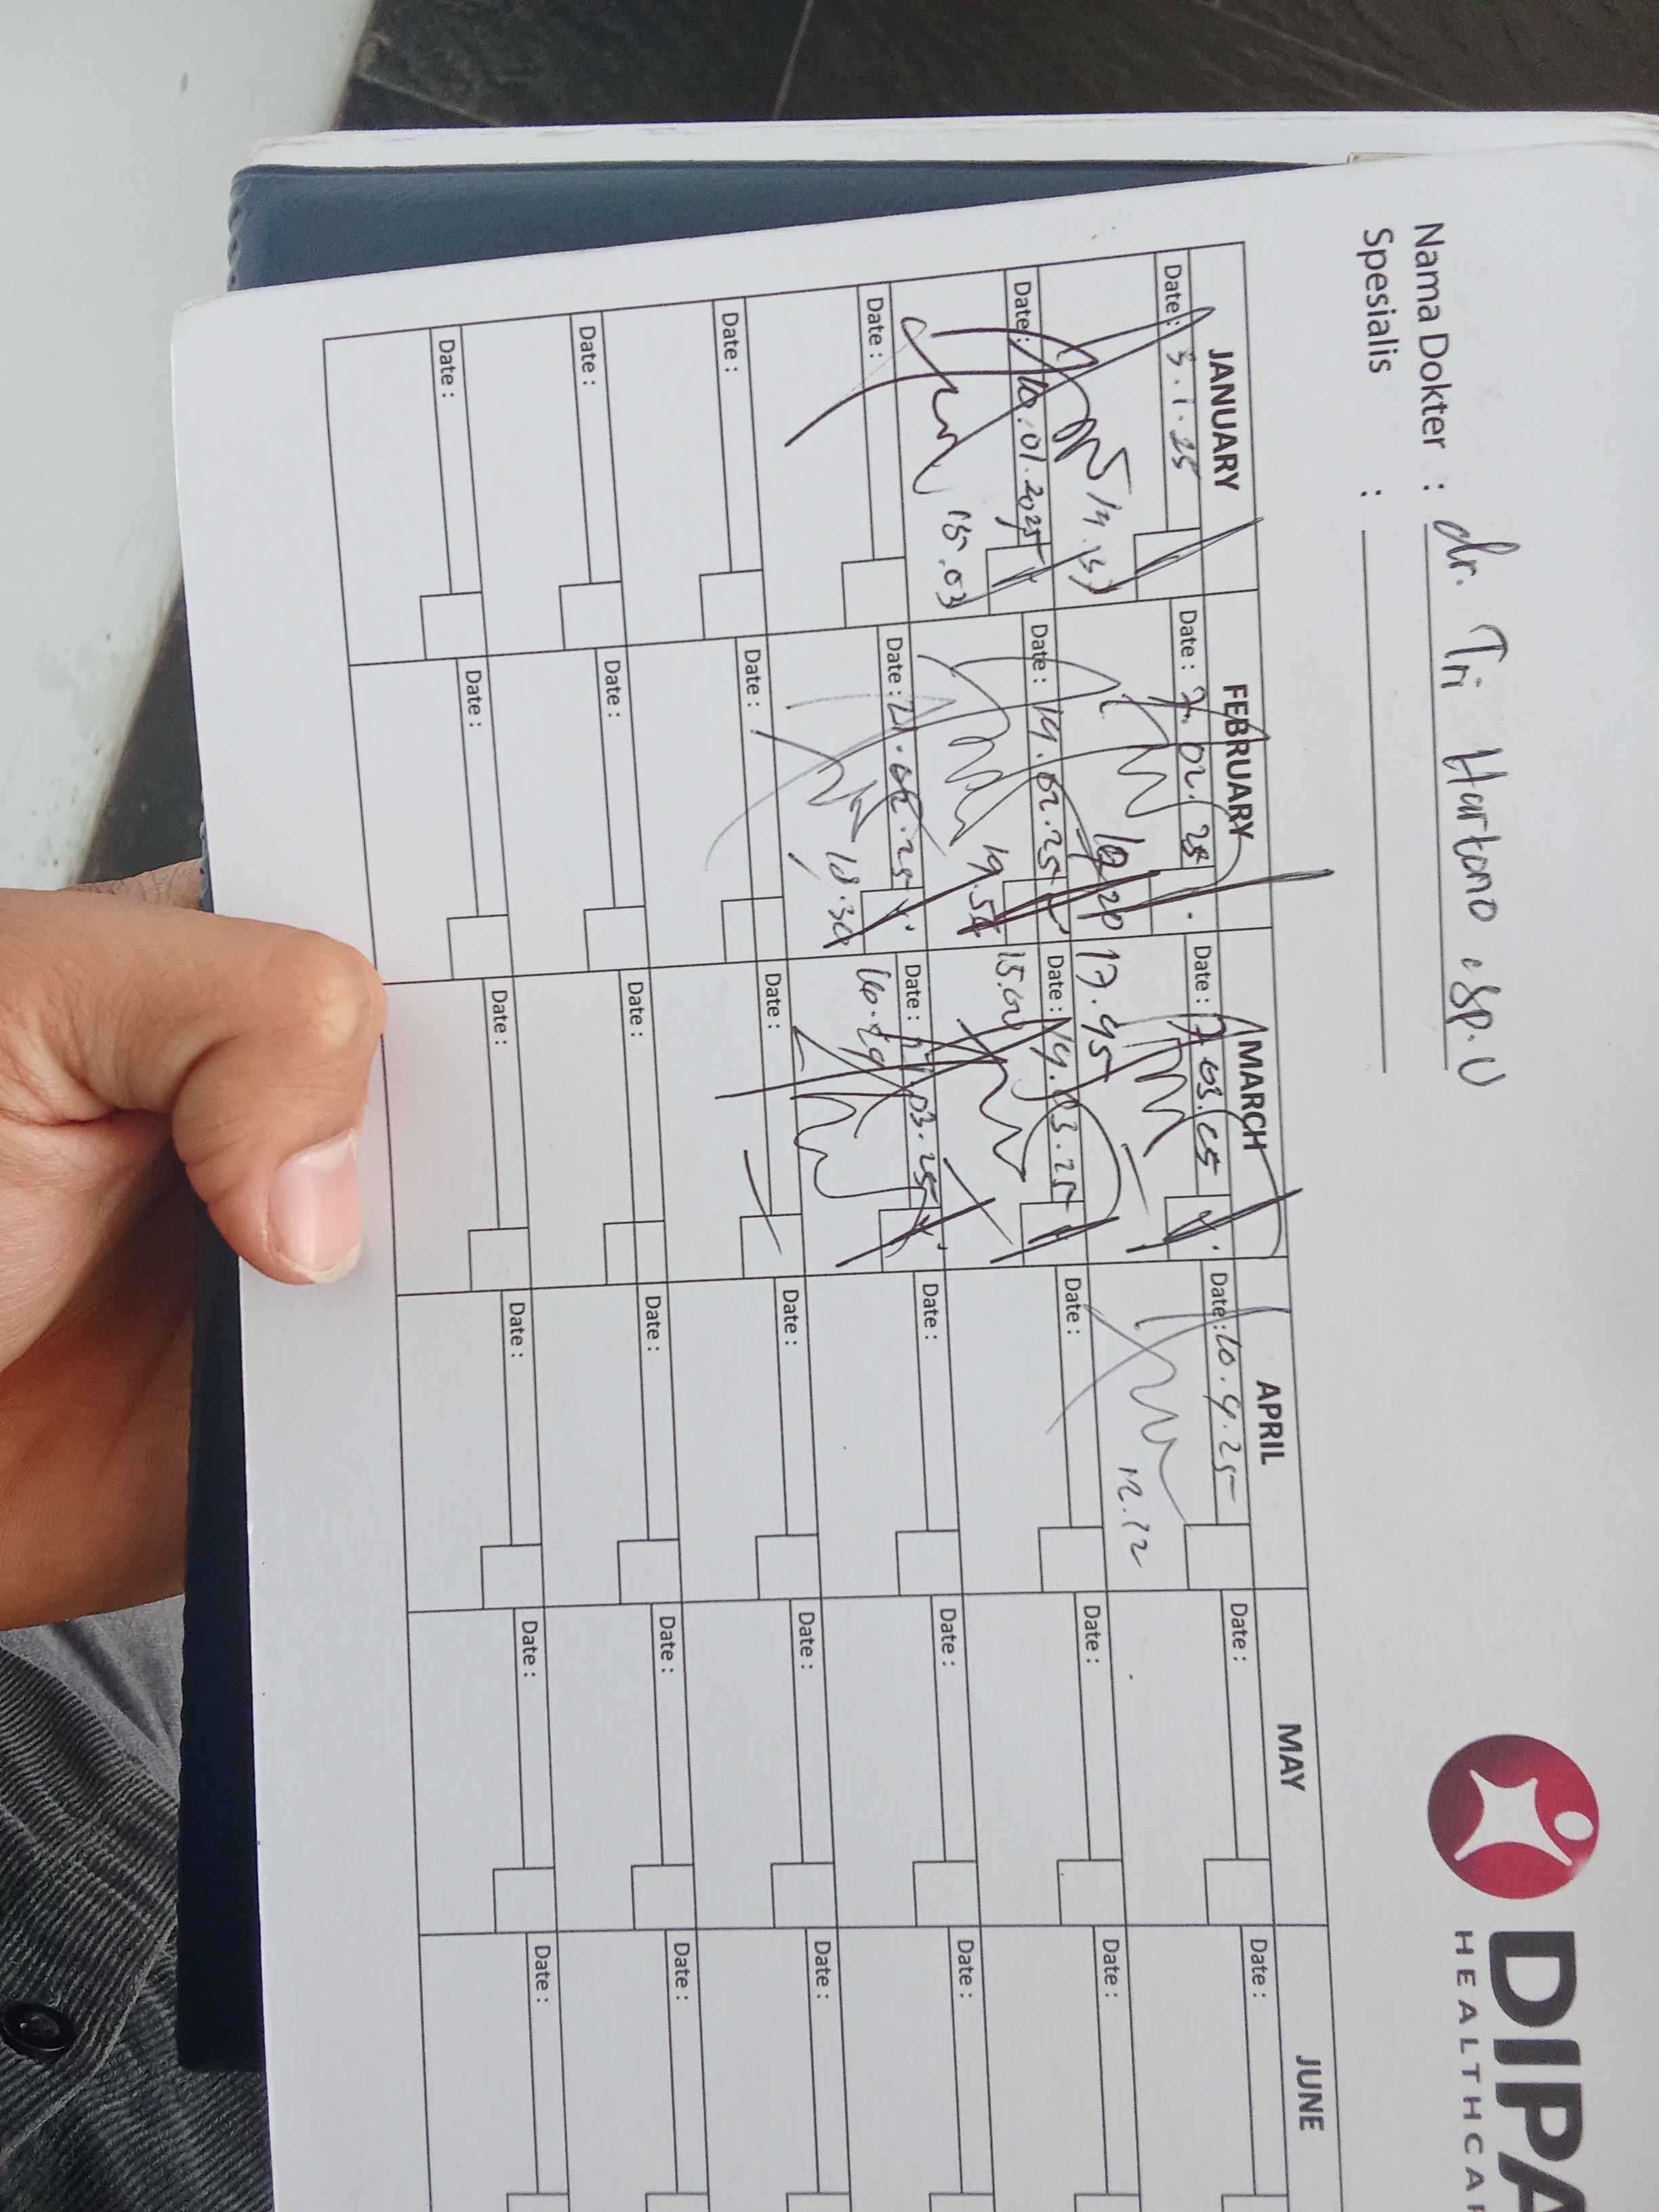 Nama Dokter : dr. Tri Hartono, Sp.U
Spesialis :
DIPA
HEALTHCAR
JANUARY FEBRUARY MARCH APRIL MAY JUNE
Date : 3.1.25 Date : 7.02.25 Date : 7.03.25 Date : 10.4.25 Date : Date :
18.20 17.45 12.12
Date : 10.01.2025 Date : 14.02.25 Date : 14.03.25 Date : Date : Date :
18.03 19.54 15.00
Date : Date : 21.02.25 Date : 03.25 Date : Date : Date :
18.30
Date : Date : Date : Date : Date : Date :
Date : Date : Date : Date : Date : Date :
Date : Date : Date : Date : Date : Date :